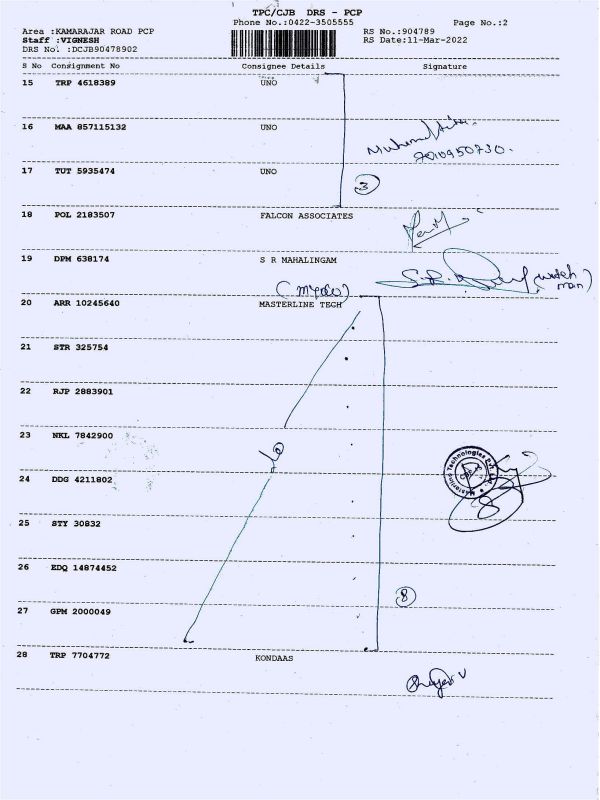 TPC/CJB DRS - PCP
Phone No.:0422-3505555 Page No.:2
Area :KAMARAJAR ROAD PCP RS No.:904789
Staff :VIGNESH RS Date:11-Mar-2022
DRS No. :DCJB90478902
S No Consignment No Consignee Details Signature
15 TRP 4618389 UNO
16 MAA 857115132 UNO
17 TUT 5935474 UNO
3
18 POL 2183507 FALCON ASSOCIATES
19 DPM 638174 S R MAHALINGAM
S.R. (watch man)
20 ARR 10245640 MASTERLINE TECH
21 STR 325754
22 RJP 2883901
23 NKL 7842900
24 DDG 4211802
Masterline Technologies Pvt. Ltd.
25 STY 30832
26 EDQ 14874452
8
27 GPM 2000049
28 TRP 7704772 KONDAAS